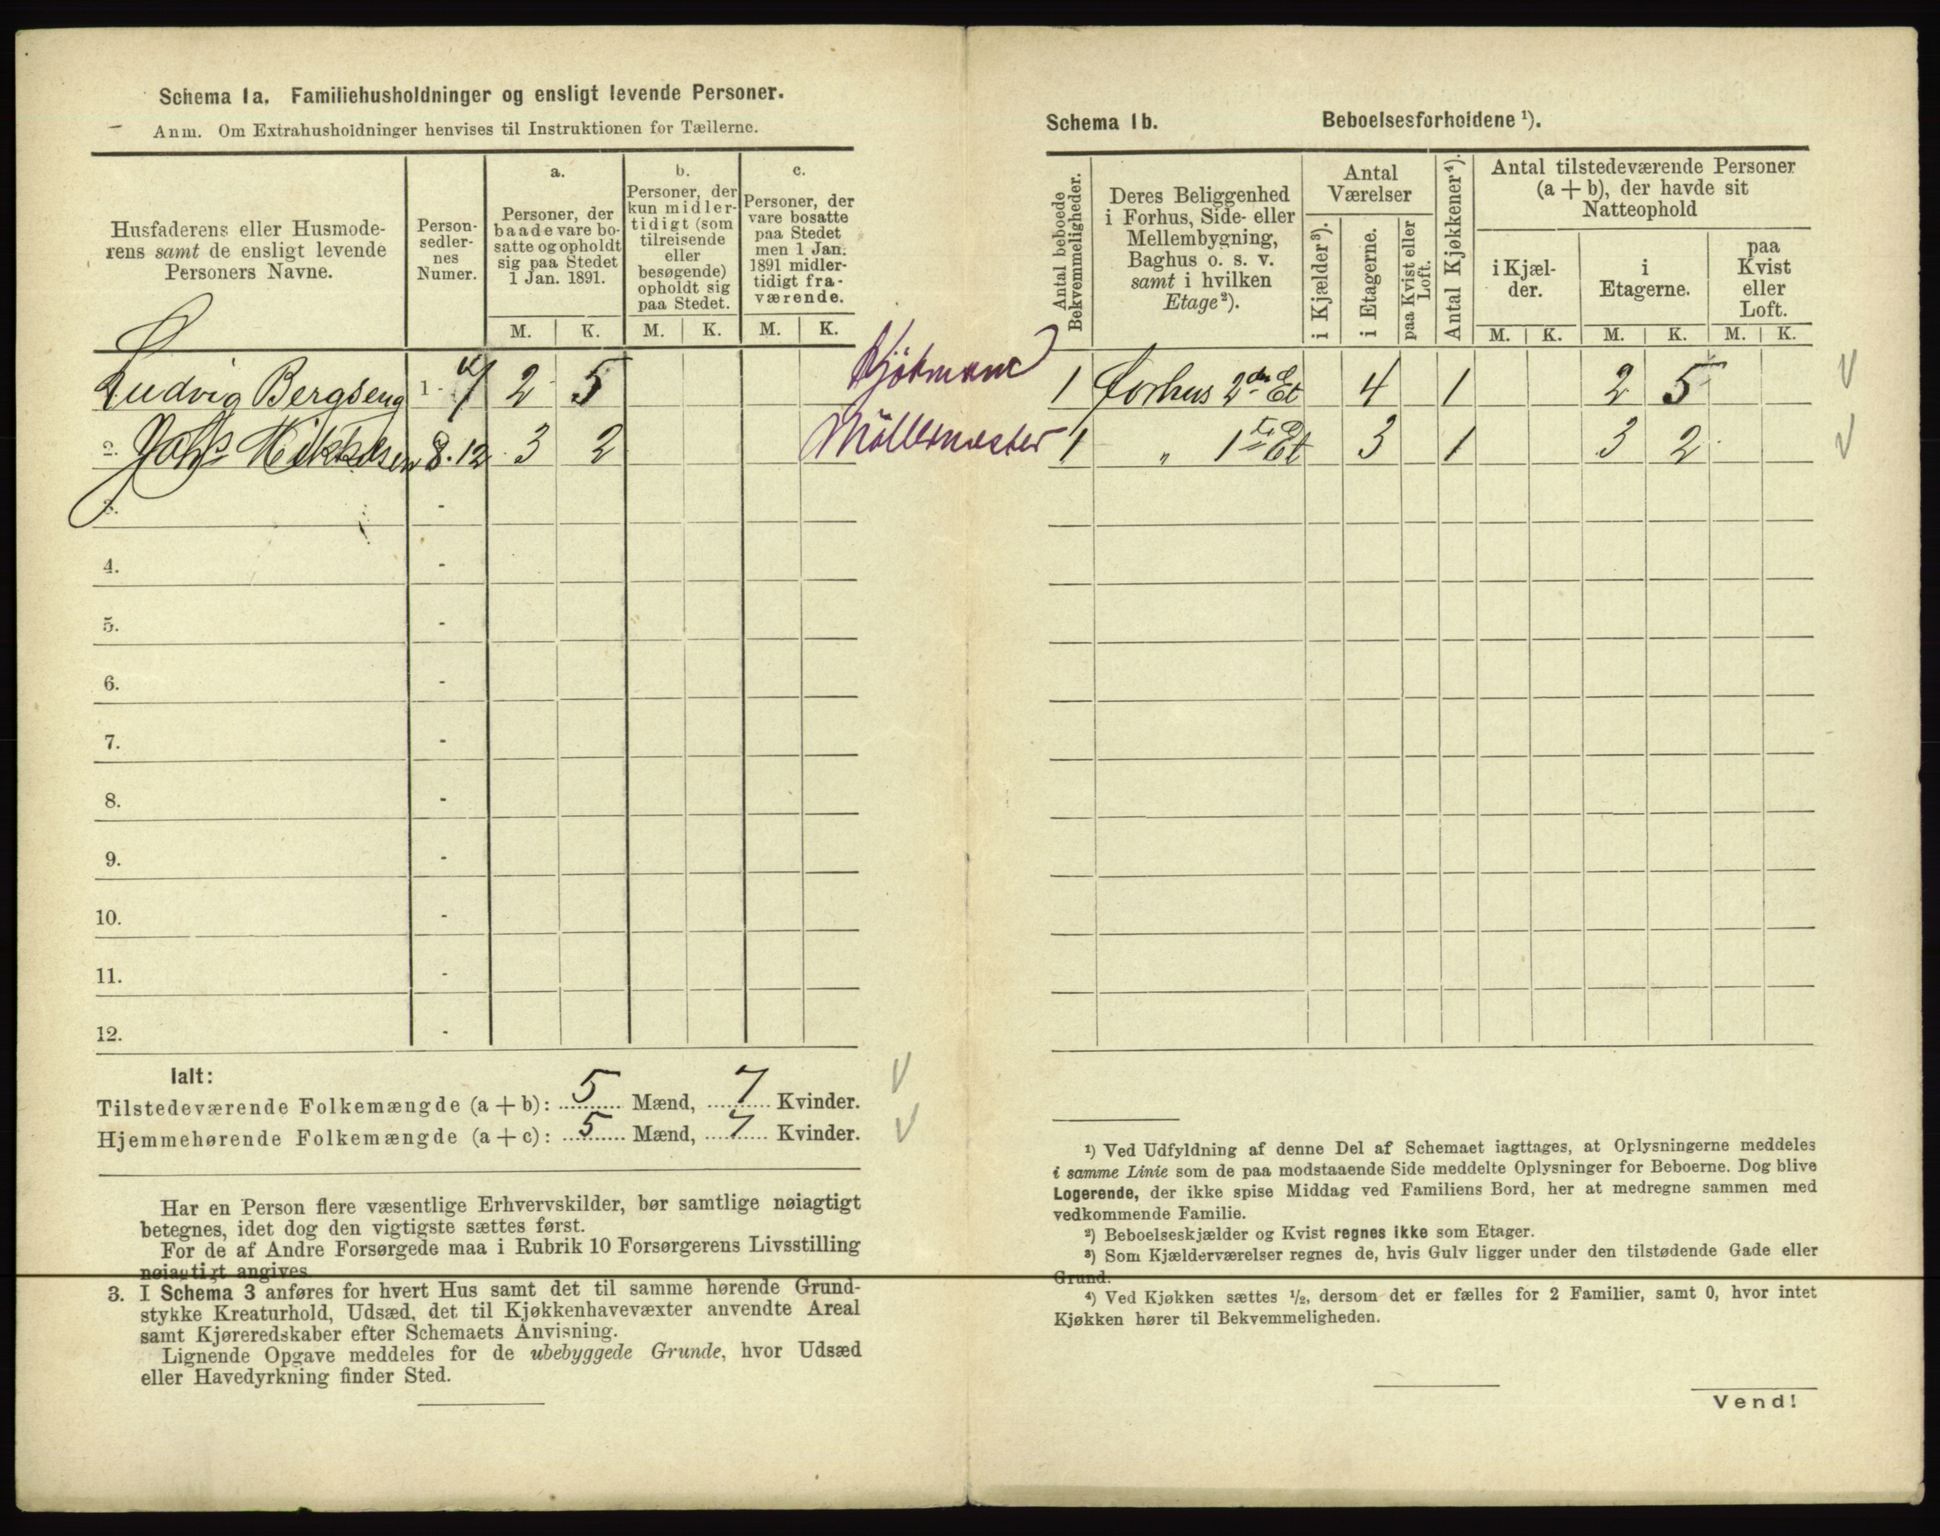 Schema 1a. Familiehusholdninger og ensligt levende Personer.
Anm. Om Extrahusholdninger henvises til Instruktionen for Tællerne.
Husfaderens eller Husmoderens samt de ensligt levende Personers Navne.
Person-
sedler-
nes
Numer.
a.
Personer, der
baade vare bo-
satte og opholdt
sig paa Stedet
1 Jan. 1891.
b.
Personer, der
kun midler-
tidigt (som
tilreisende
eller
besøgende)
opholdt sig
paa Stedet.
c.
Personer, der
vare bosatte
paa Stedet
men 1 Jan.
1891 midler-
tidigt fra-
værende.
M. K. M. K. M. K.
Ludvig Bergseng 1 - 7 2 5 Kjøbmand
2. Johs Mikkelsen 8 - 12 3 2 Møllemester
3. -
4. -
5. -
6. -
7. -
8. -
9. -
10. -
11. -
12. -
Ialt:
Tilstedeværende Folkemængde (a + b): 5 Mænd, 7 Kvinder.
Hjemmehørende Folkemængde (a + c): 5 Mænd, 7 Kvinder.
Har en Person flere væsentlige Erhvervskilder, bør samtlige nøiagtigt
betegnes, idet dog den vigtigste sættes først.
For de af Andre Forsørgede maa i Rubrik 10 Forsørgerens Livsstilling
nøiagtigt angives
3. I Schema 3 anføres for hvert Hus samt det til samme hørende Grund-
stykke Kreaturhold, Udsæd, det til Kjøkkenhavevæxter anvendte Areal
samt Kjøreredskaber efter Schemaets Anvisning.
Lignende Opgave meddeles for de ubebyggede Grunde, hvor Udsæd
eller Havedyrkning finder Sted.
Schema 1b. Beboelsesforholdene ¹).
Antal beboede
Bekvemmeligheder.
Deres Beliggenhed
i Forhus, Side- eller
Mellembygning,
Baghus o. s. v.
samt i hvilken
Etage²).
Antal
Værelser
i Kjælder³).
i Etagerne.
paa Kvist eller
Loft.
Antal Kjøkkener⁴).
Antal tilstedeværende Personer
(a + b), der havde sit
Natteophold
i Kjæl-
der.
i
Etagerne.
paa
Kvist
eller
Loft.
M. K. M. K. M. K.
1 Forhus 2den Et 4 1 2 5
1 „ 1ste Et 3 1 3 2
¹) Ved Udfyldning af denne Del af Schemaet iagttages, at Oplysningerne meddeles
i samme Linie som de paa modstaaende Side meddelte Oplysninger for Beboerne. Dog blive
Logerende, der ikke spise Middag ved Familiens Bord, her at medregne sammen med
vedkommende Familie.
²) Beboelseskjælder og Kvist regnes ikke som Etager.
³) Som Kjælderværelser regnes de, hvis Gulv ligger under den tilstødende Gade eller
Grund.
⁴) Ved Kjøkken sættes ½, dersom det er fælles for 2 Familier, samt 0, hvor intet
Kjøkken hører til Bekvemmeligheden.
Vend!